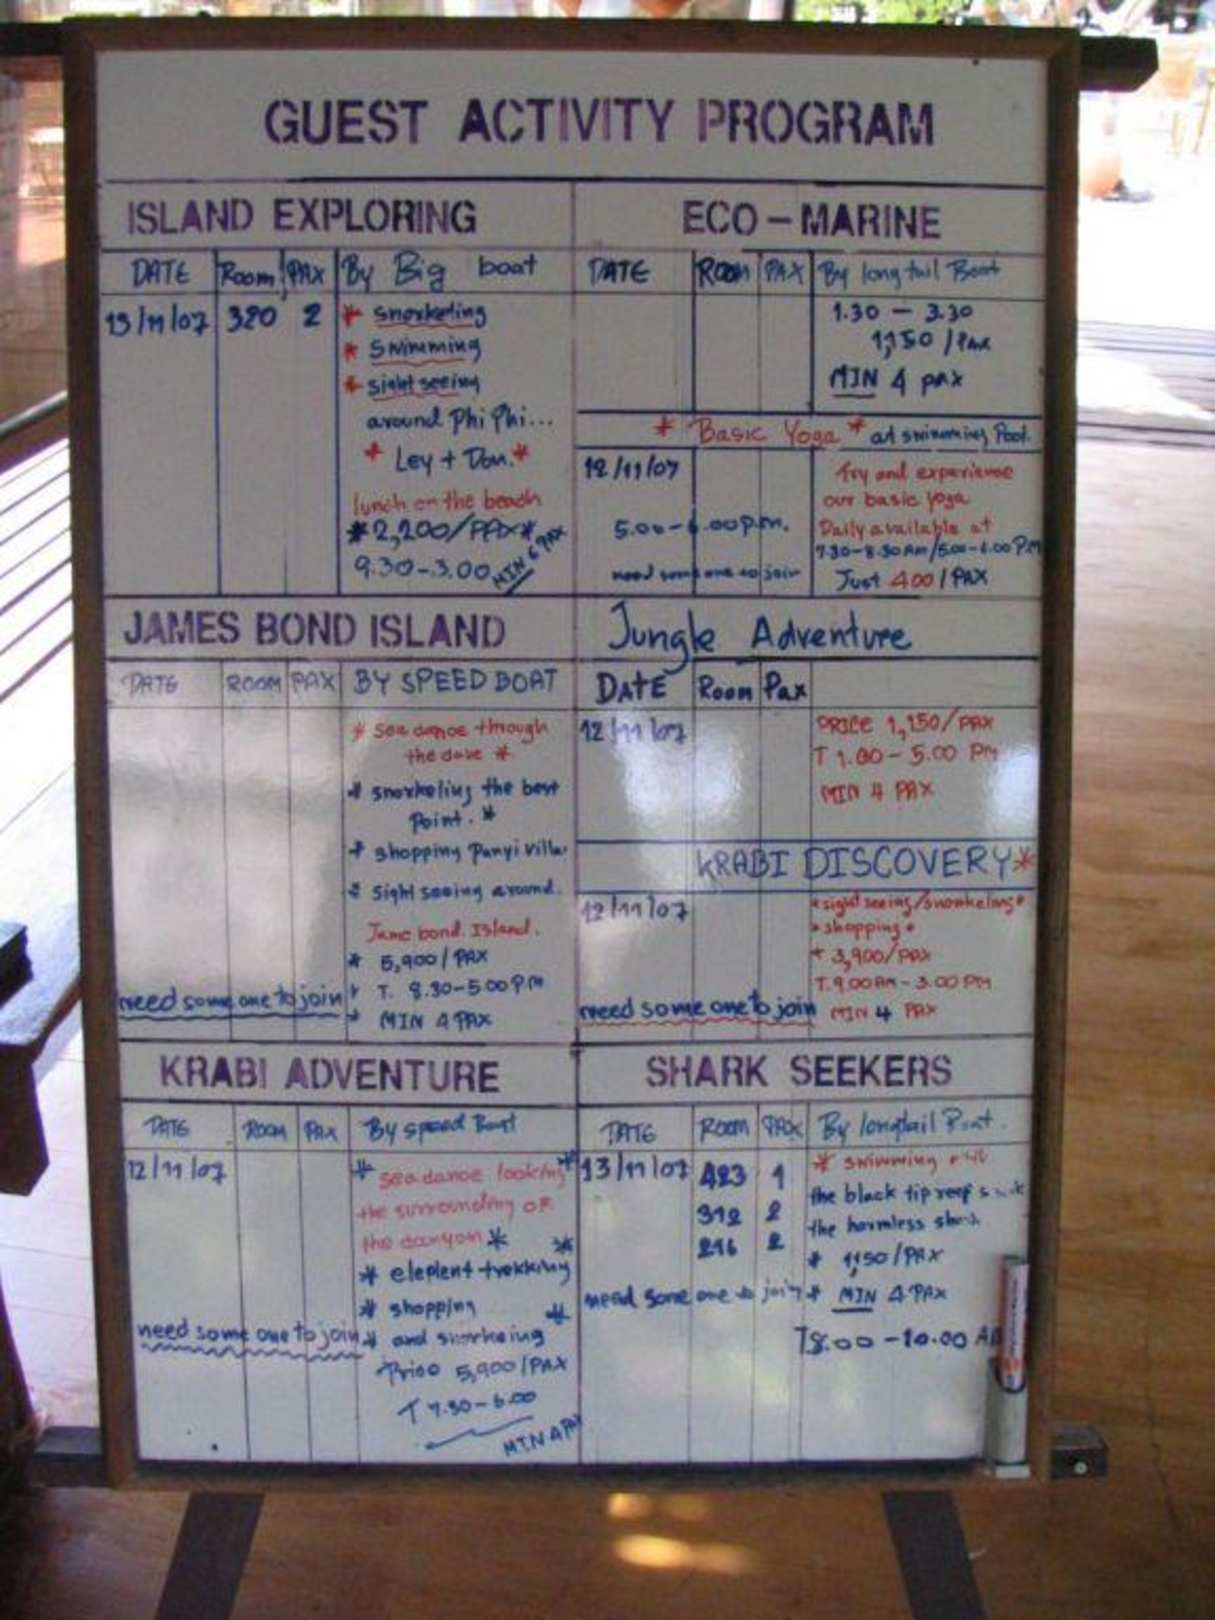 GUEST ACTIVITY PROGRAM
ISLAND EXPLORING
DATE Room PAX By Big boat
13/11/07 320 2 * snorkeling
* Swimming
* sight seeing
around Phi Phi...
* Ley + Don. *
lunch on the beach
* 2,200/PAX *
9.30-3.00 MIN 6 PAX
ECO-MARINE
DATE ROOM PAX By long tail Boat
1.30 - 3.30
1,150 /PAX
MIN 4 PAX
* Basic Yoga * at swimming Pool.
12/11/07 Try and experience
our basic yoga
5.00-6.00 p.m. Daily available at
7.30-8.30 Am/5.00-6.00 P.M
need someone to join Just 400/PAX
JAMES BOND ISLAND
DATE ROOM PAX BY SPEED BOAT
* Sea canoe through
the cave *
* snorkeling the best
Point. *
* shopping Panyi
* Sight seeing around.
Jame bond Island.
* 5,900/PAX
need some one to join * T. 8.30-5.00 PM
* MIN 4 PAX
Jungle Adventure
DATE Room Pax
12/11/07 PRICE 1,150/PAX
T 1.00 - 5.00 PM
MIN 4 PAX
KRABI DISCOVERY *
12/11/07 * sight seeing/snorkeling *
* shopping *
* 3,900/PAX
T. 9.00 AM - 3.00 PM
need some one to join MIN 4 PAX
KRABI ADVENTURE
DATE ROOM PAX By speed Boat
12/11/07 * sea canoe looking *
the surrounding OR
the canyon *
* eleplent trekking *
* shopping *
need some one to join * and snorkeing
Price 5,900/PAX
T 7.30-6.00
MIN 4 PAX
SHARK SEEKERS
DATE ROOM PAX By longtail Boat.
13/11/07 423 1 * swimming with
312 2 the black tip reef
216 2 the harmless shark
* 1,150/PAX
need some one to join * MIN 4 PAX
T8.00 - 10.00